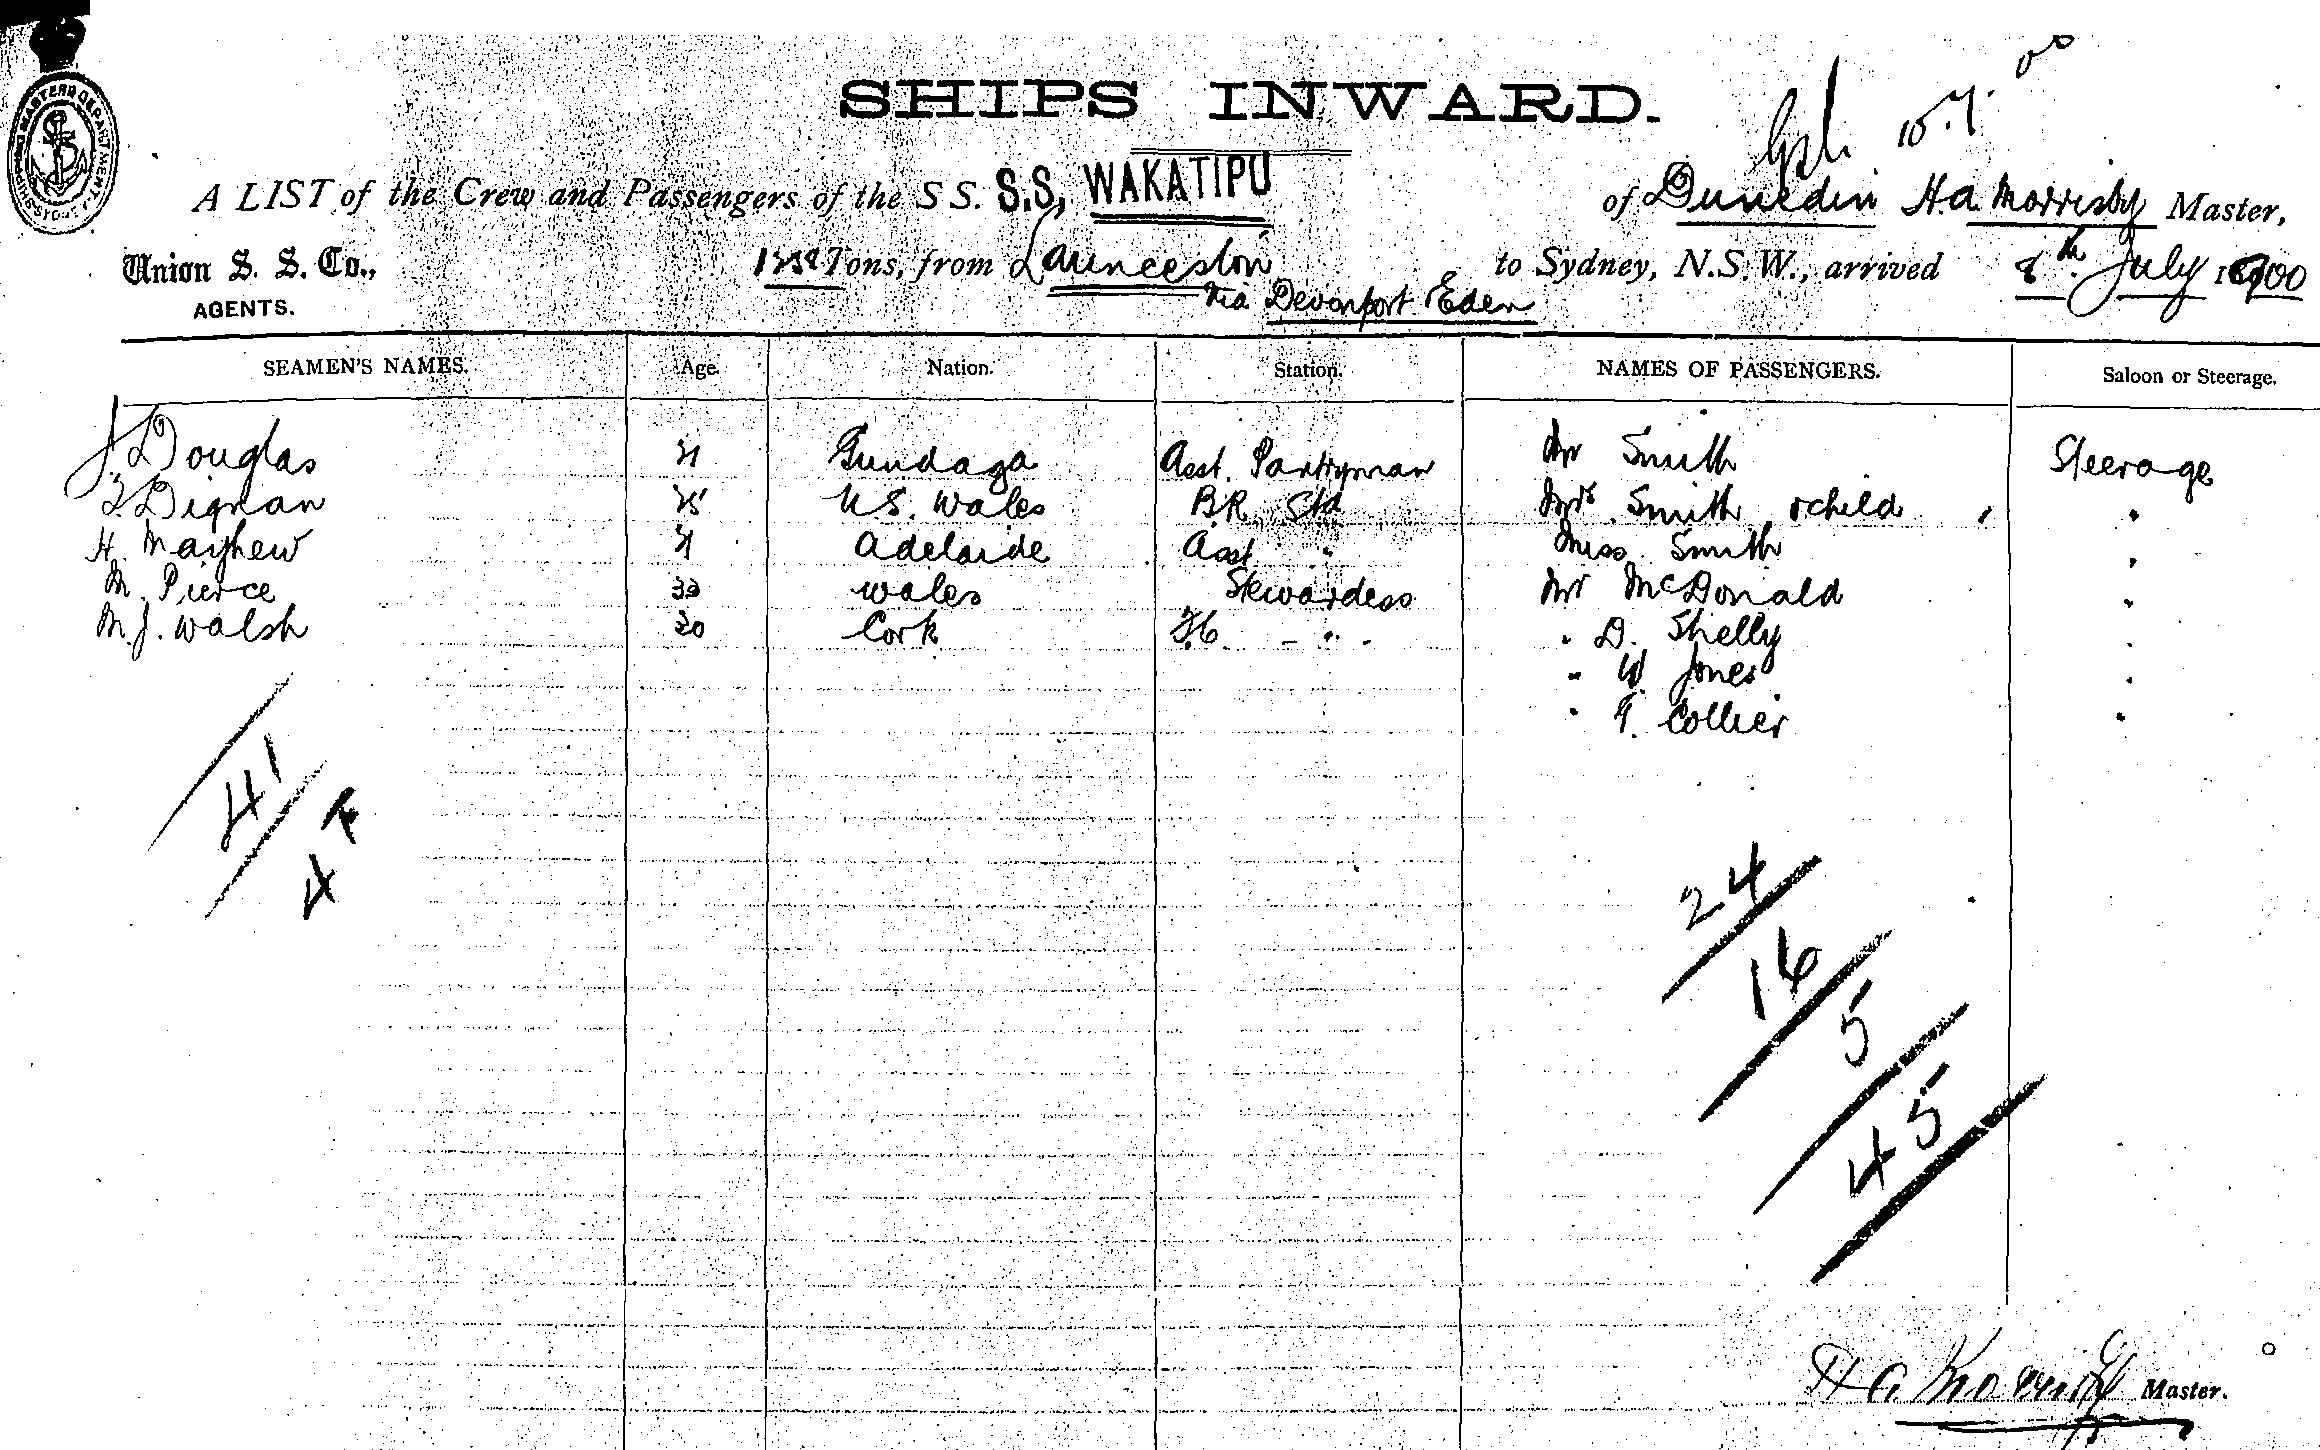 SHIPS INWARD.
10.7.00
A LIST of the Crew and Passengers of the S S. S.S, WAKATIPU of Dunedin H.A. Morrisby Master,
Union S. S. Co., Tons, from Launceston to Sydney, N.S.W., arrived 8th July 1900
AGENTS. via Devonport Eden
SEAMEN'S NAMES. Age. Nation. Station. NAMES OF PASSENGERS. Saloon or Steerage.
J. Douglas 21 Asst. Pantryman Mr Smith Steerage
Dignan 25 N.S. Wales B.R. Std Mrs. Smith & child , "
H. Mayhew 21 Adelaide Asst " Miss. Smith "
M. Pierce Wales Stewardess Mr McDonald "
M.J. Walsh 30 Cork F.C. - " - " D. Shelly "
" W. Jones "
" T. Collier "
41
4
24
16
5
45
H A Morrisby Master.